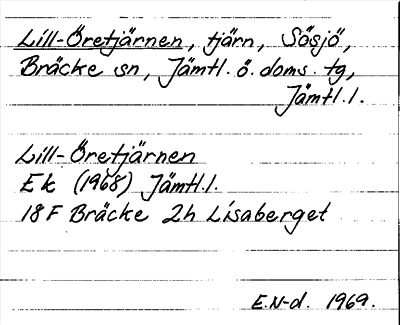 Lill-Öretjärnen, tjärn, Sösjö,
Bräcke sn, Jämtl. ö. doms. tg,
Jämtl. l.
Lill-Öretjärnen
Ek (1968) Jämtl. l.
18F Bräcke 2h Lisaberget
E.N-d. 1969.